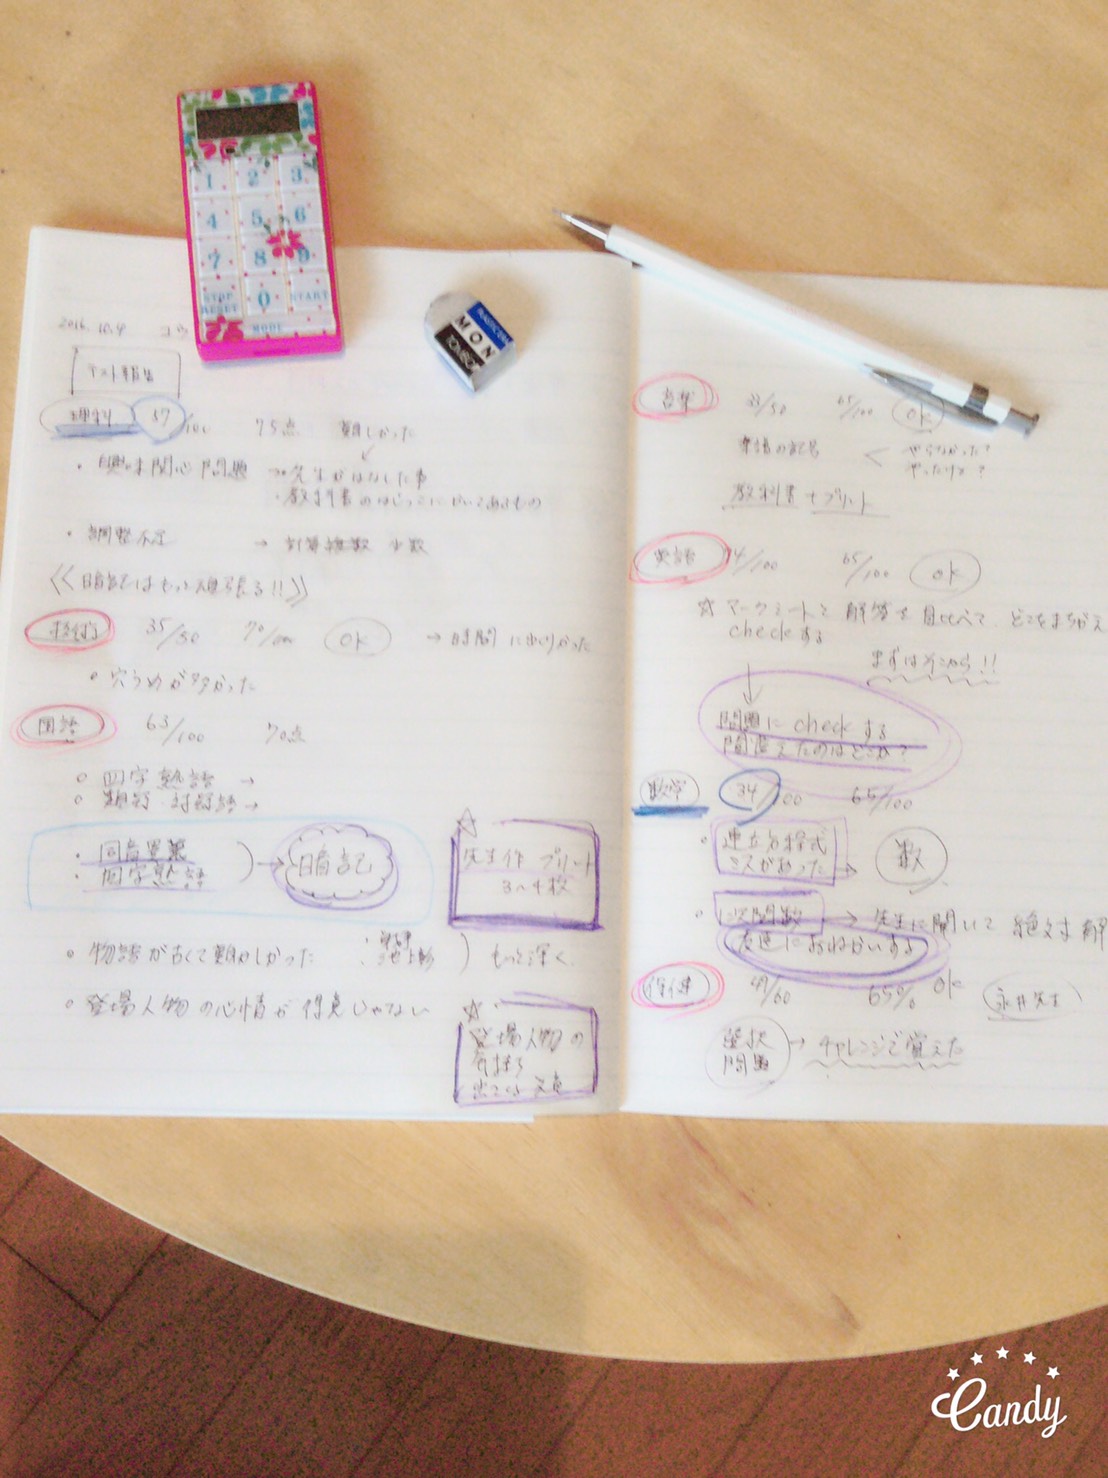 1 2 3
4 5 6
7 8 9
STOP RESET 0 START
MODE
MONO
TOMBOW
2016. 10.4 コウ
テスト報告
理科 57/100 75点 難しかった
・興味関心問題 →・先生がはなした事
・教科書のはじっこにかいてあるもの
・調整不足 →
《暗記はもっと頑張る!!》
技術 35/50 70/100 OK → 時間
・穴うめが多かった
国語 63/100 70点
・四字熟語 →
・類語・対語 →
・同音異義
・四字熟語
→ 暗記
☆先生作 プリント
3〜4枚
・物語が古くて難かしかった
もっと深く
・登場人物の心情が得意じゃない
☆登場人物の
気持ち
音楽 33/50 65/100 OK
楽譜の記号 < やらなかった?
やったけど?
教科書 + プリント
英語 /100 65/100 OK
☆マークシートと解答を見比べて、どこをまちがえ
checkする
まずはそこから!!
問題に checkする
間違えたのはどこか?
数学 34/100 65/100
・連立方程式
ミスがあった → 数
・1次関数 → 先生に聞いて 絶対
友達におねがいする
保健 /60 65% OK 永井先生
選択
問題 → チャレンジで覚えた
Candy